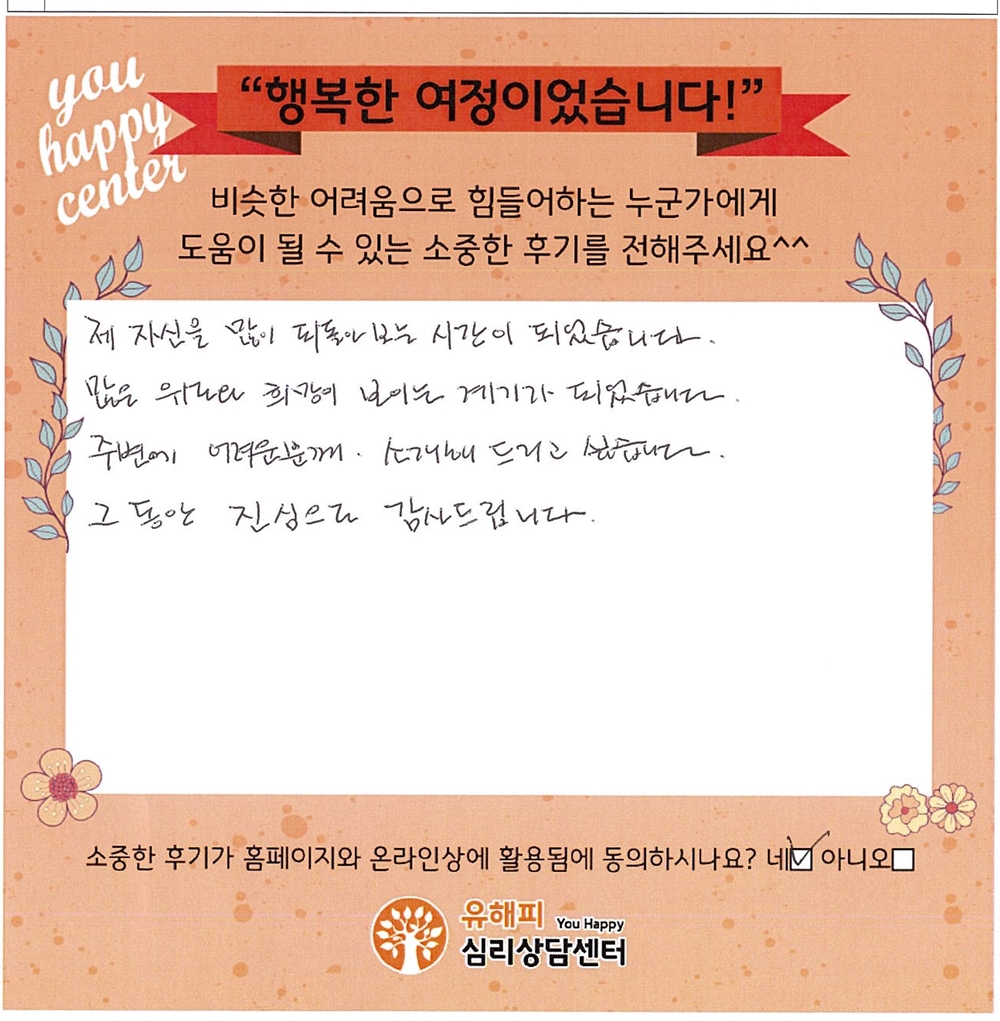 you
happy
center
“행복한 여정이었습니다!”
비슷한 어려움으로 힘들어하는 누군가에게
도움이 될 수 있는 소중한 후기를 전해주세요^^
제 자신을 많이 되돌아보는 시간이 되었습니다.
많은 위로와 희망이 보이는 계기가 되었습니다.
주변에 어려운분께. 소개해 드리고 싶습니다.
그 동안 진심으로 감사드립니다.
소중한 후기가 홈페이지와 온라인상에 활용됨에 동의하시나요? 네☑ 아니오☐
유해피 You Happy
심리상담센터